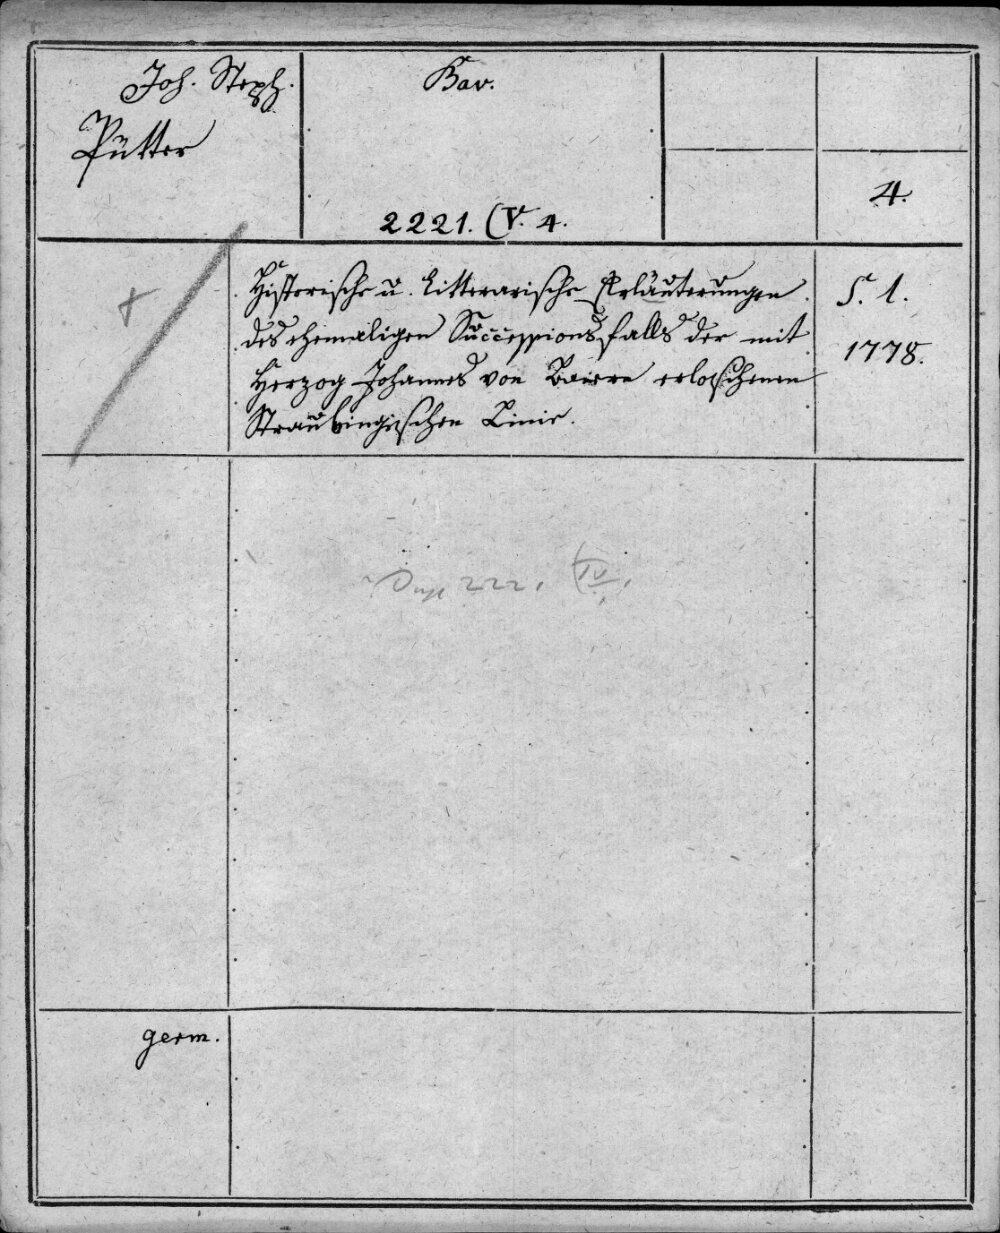 Joh. Steph.
Pütter
Bav.
2221. (V. 4.
4.
Historische u. Litterarische Erläuterungen
des ehemaligen Successionsfalls der mit
Herzog Johannes von Baiern erloschenen
Straubingischen Linie.
S. l.
1778.
222. IV.
germ.